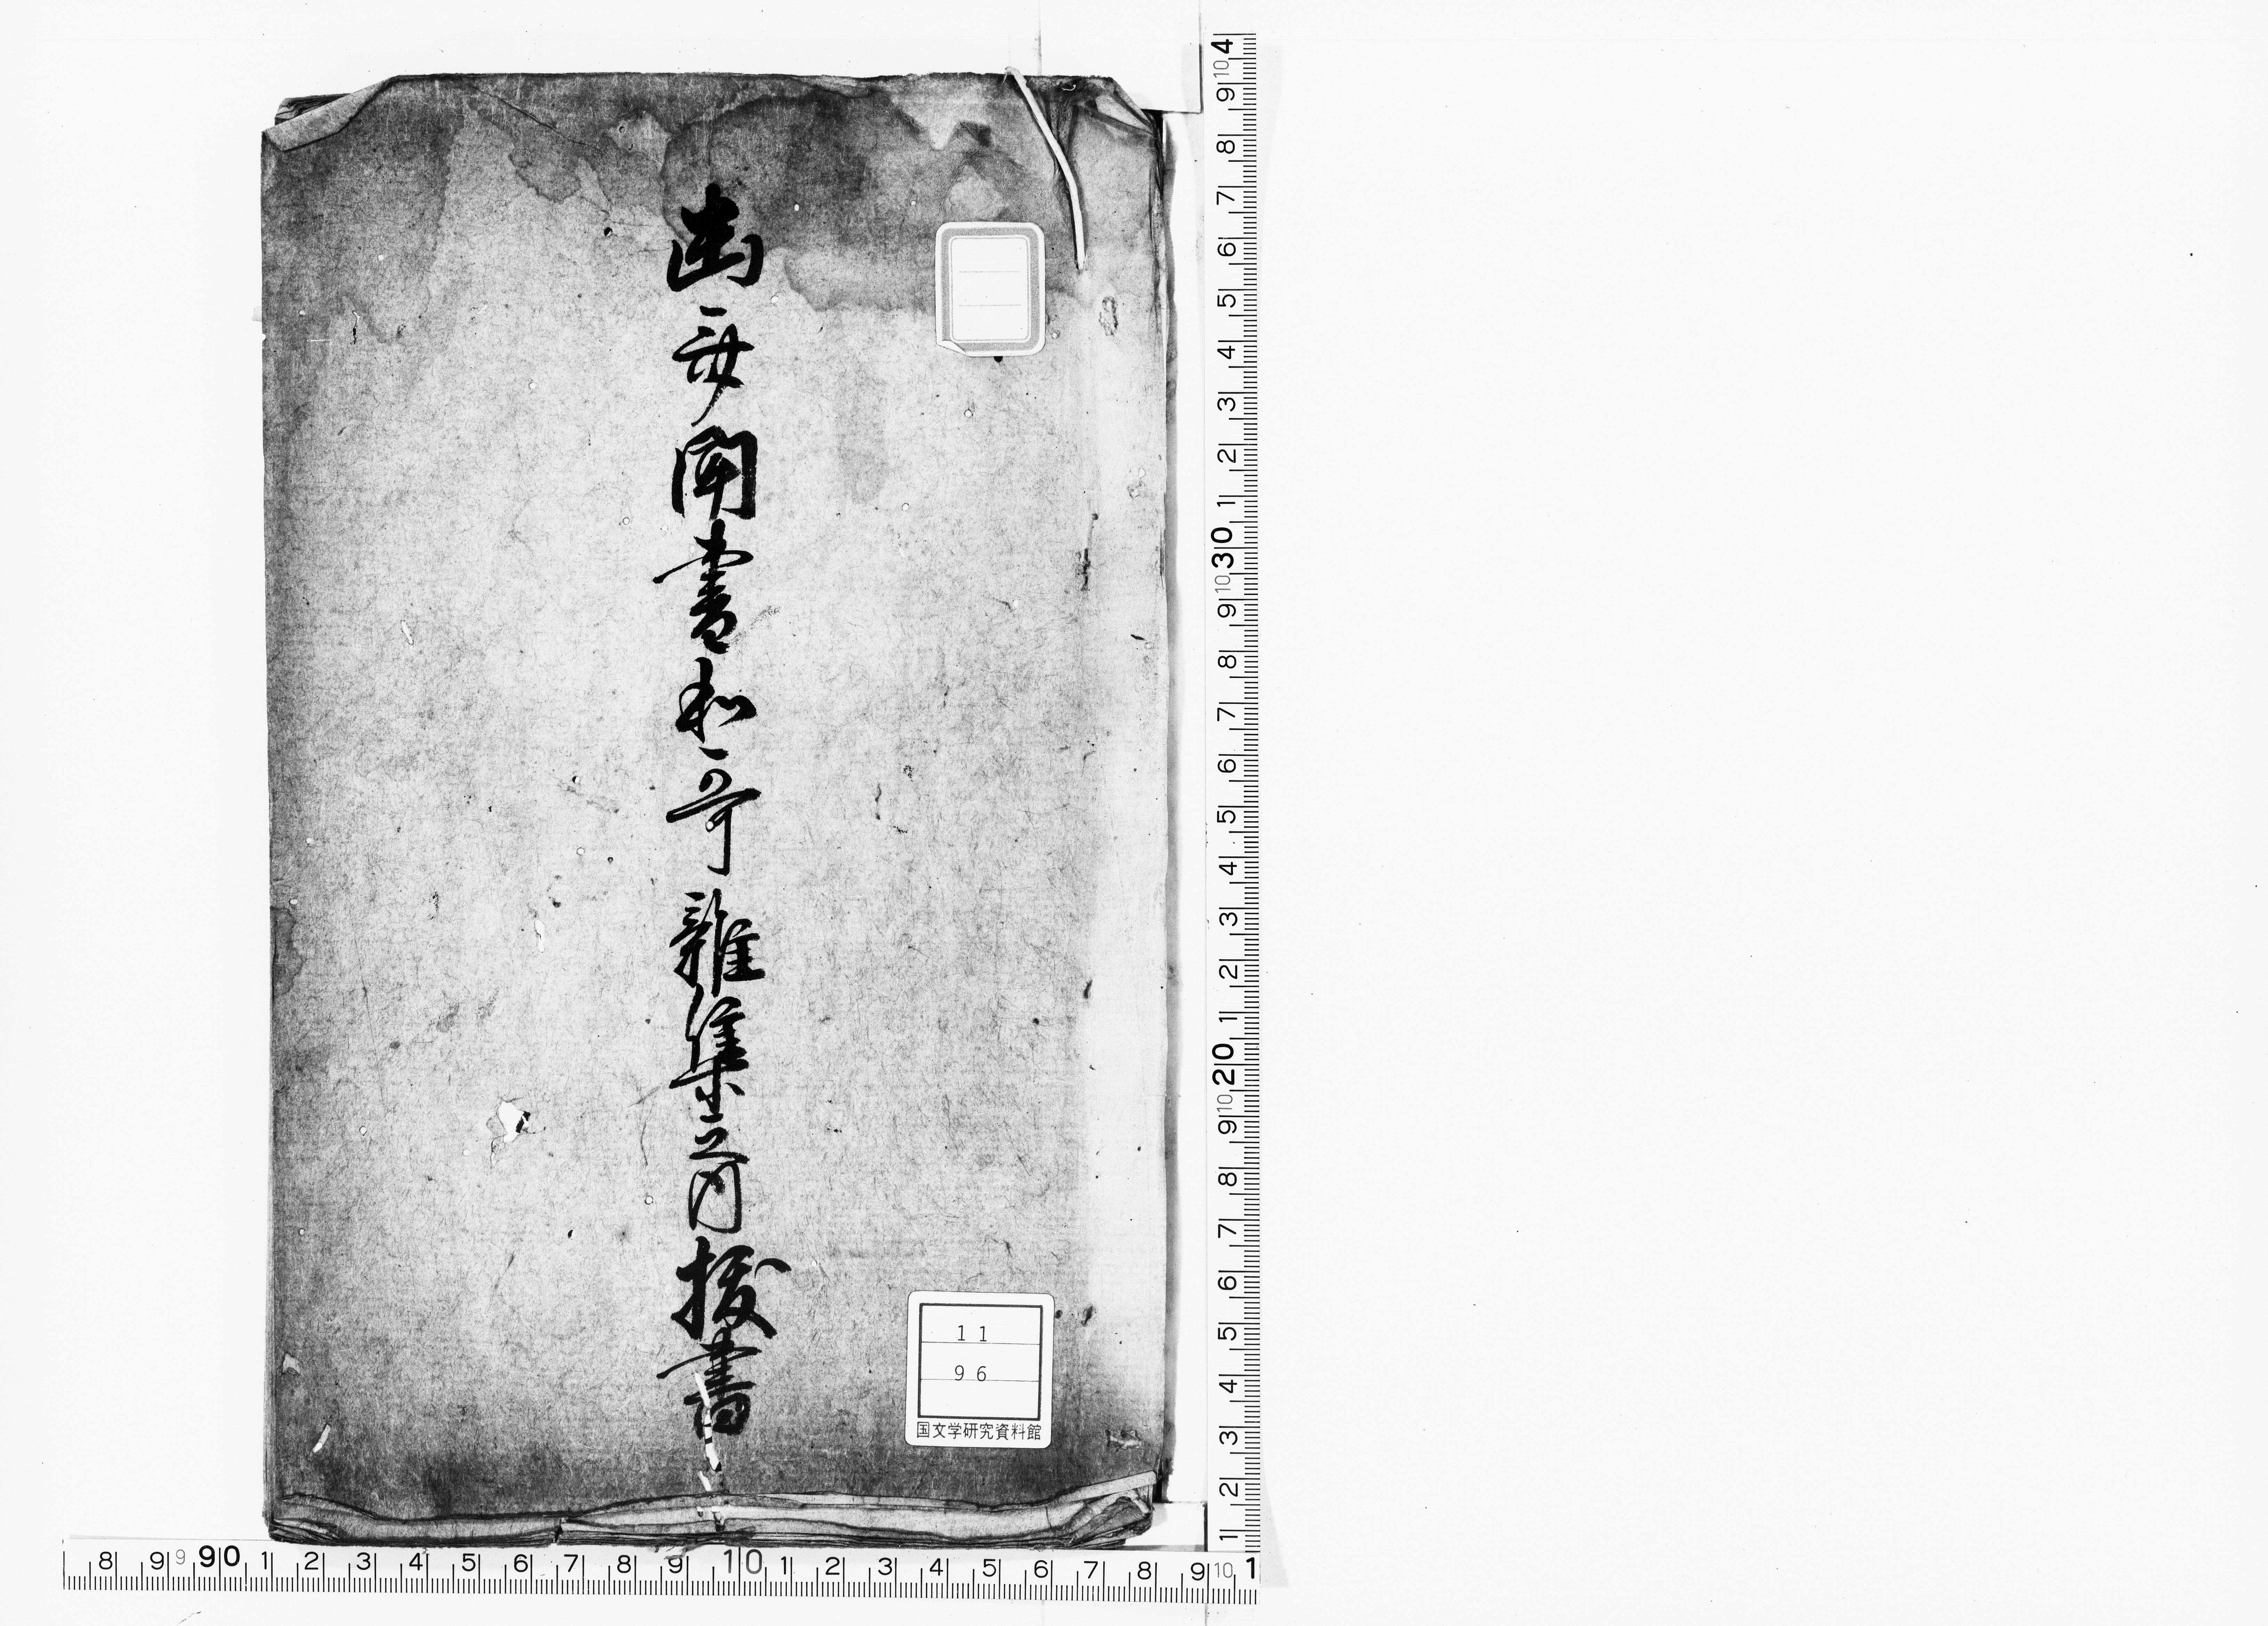 幽斎聞書和哥雜集之内抜書
11
96
国文学研究資料館
1 2 3 4 5 6 7 8 9 10 20 1 2 3 4 5 6 7 8 9 10 30 1 2 3 4 5 6 7 8 9 10 4
8 9 9 90 1 2 3 4 5 6 7 8 9 10 1 2 3 4 5 6 7 8 9 10 1